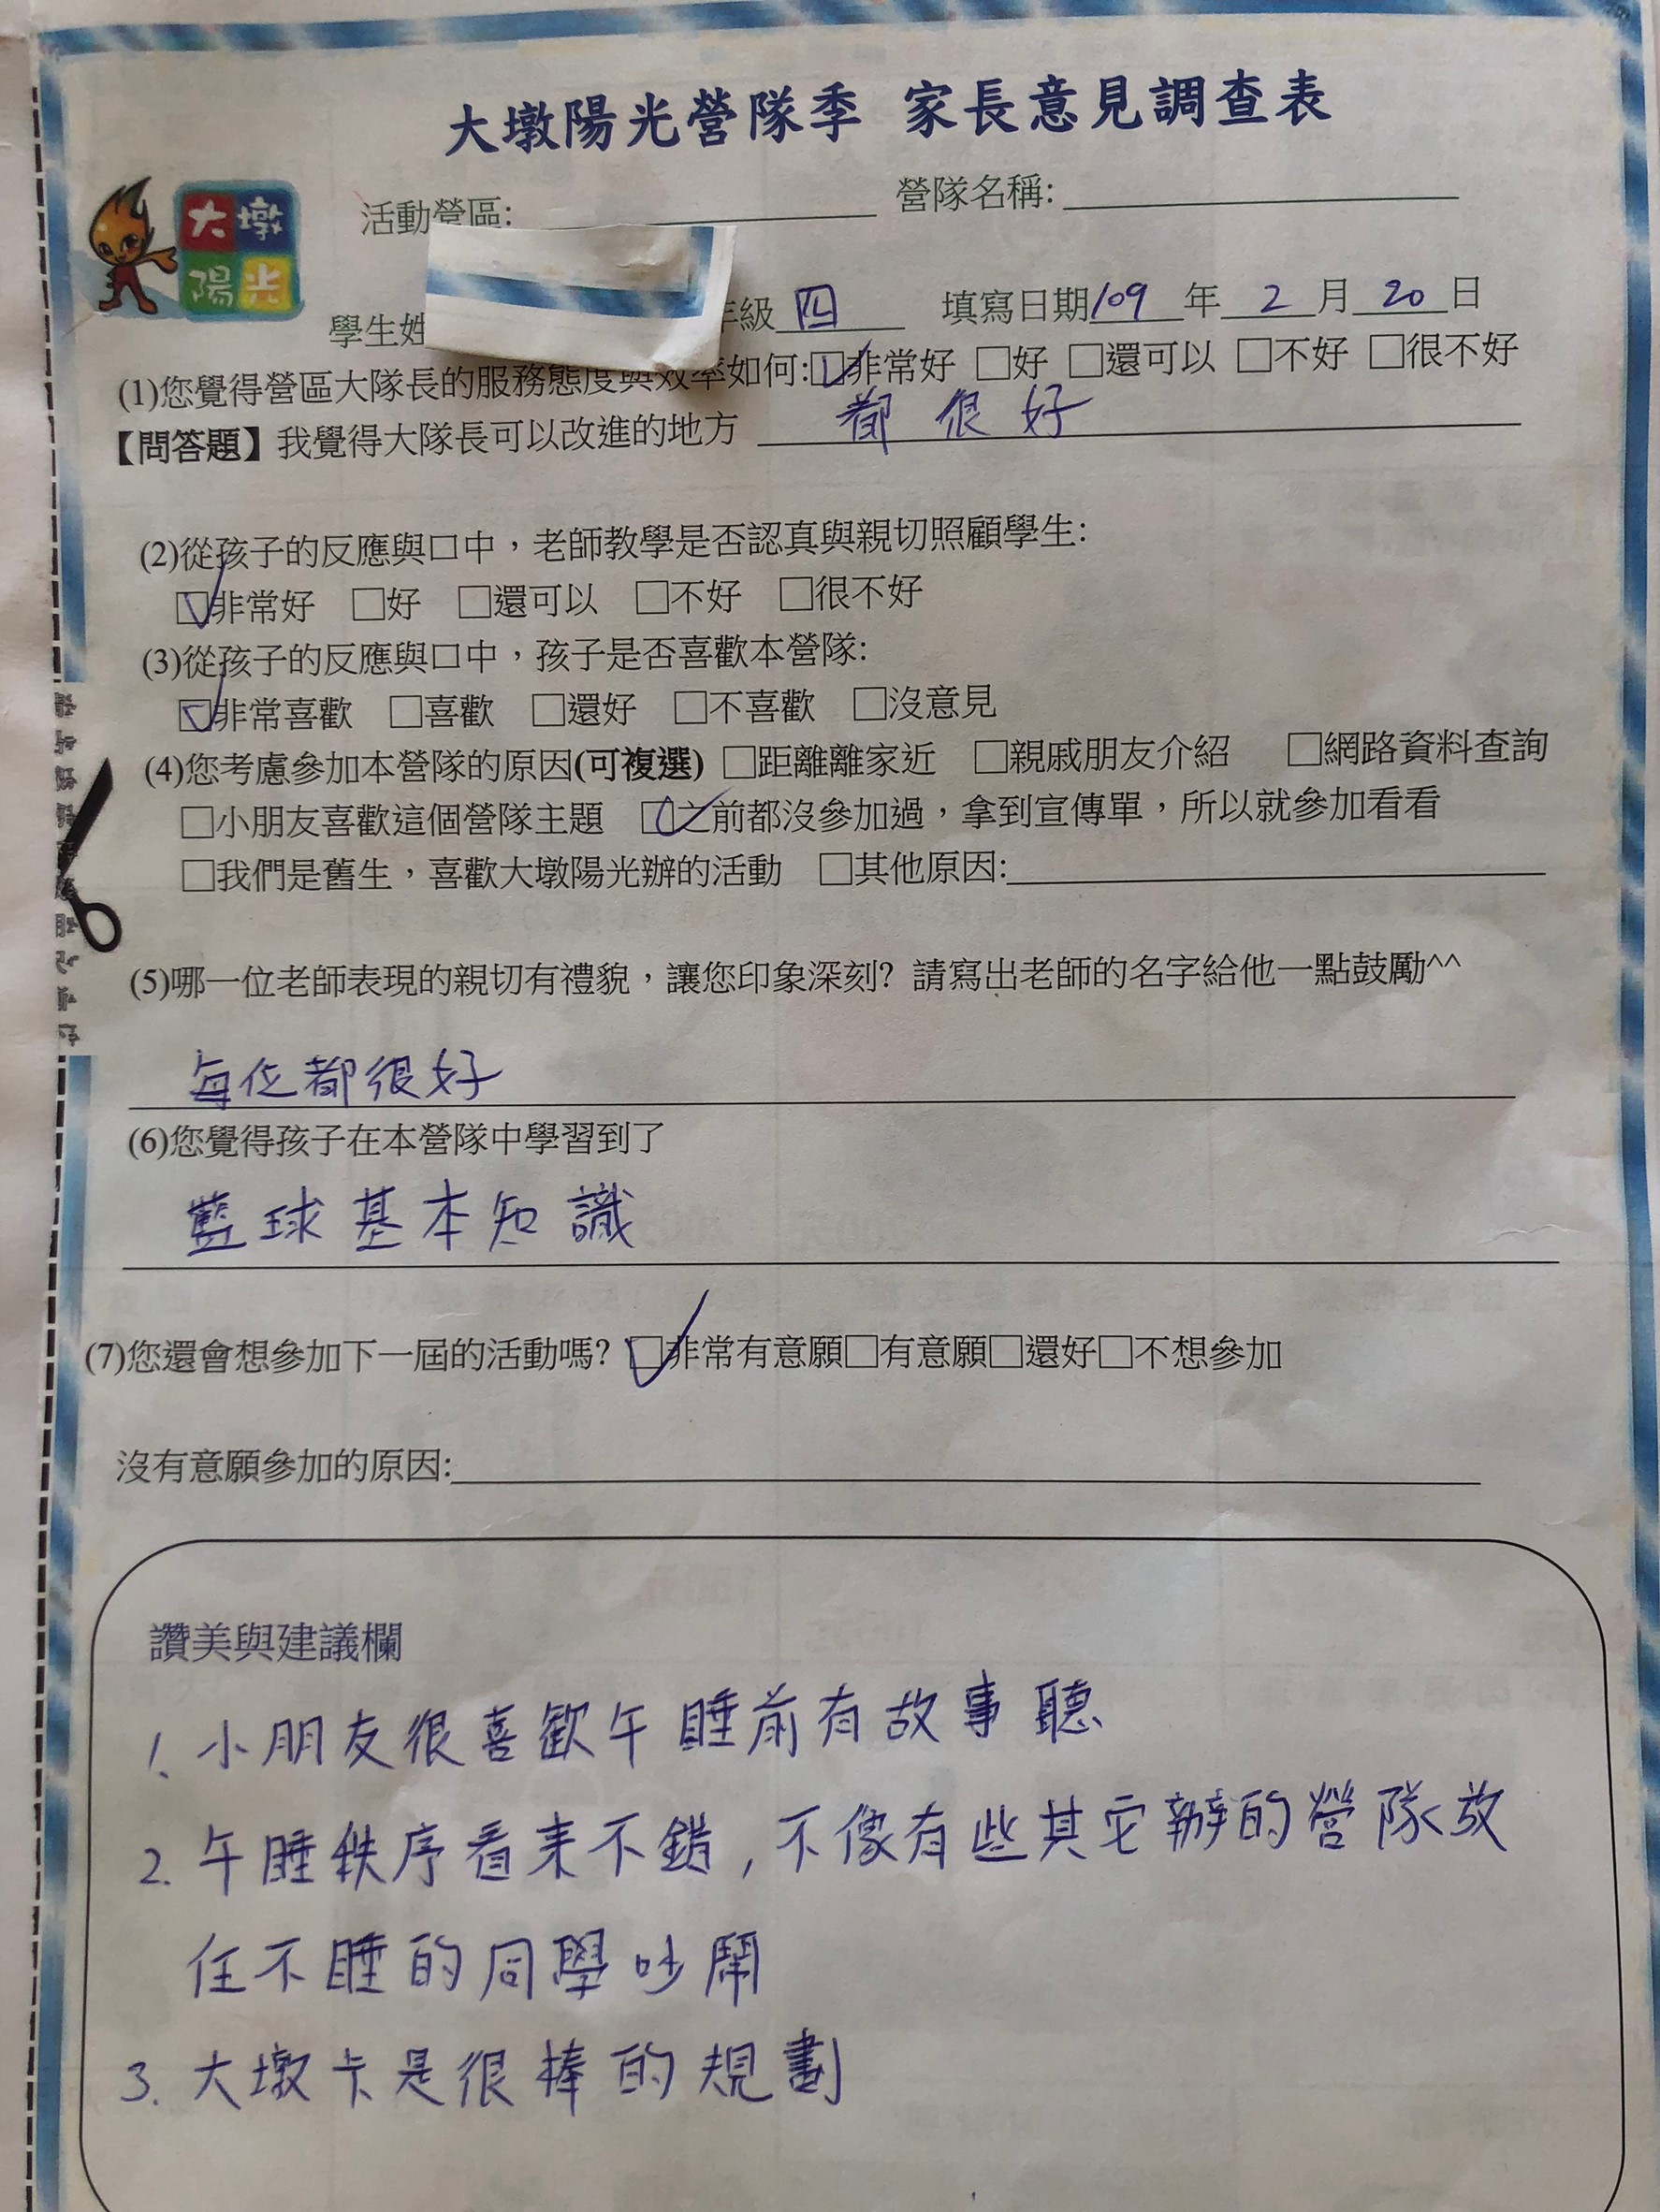 大墩陽光營隊季 家長意見調查表
大墩
陽光
活動營區: 營隊名稱:
學生姓 年級 四 填寫日期 109 年 2 月 20 日
(1)您覺得營區大隊長的服務態度與效率如何:☑非常好 □好 □還可以 □不好 □很不好
【問答題】我覺得大隊長可以改進的地方 都很好
(2)從孩子的反應與口中，老師教學是否認真與親切照顧學生:
☑非常好 □好 □還可以 □不好 □很不好
(3)從孩子的反應與口中，孩子是否喜歡本營隊:
☑非常喜歡 □喜歡 □還好 □不喜歡 □沒意見
(4)您考慮參加本營隊的原因(可複選) □距離離家近 □親戚朋友介紹 □網路資料查詢
□小朋友喜歡這個營隊主題 ☑之前都沒參加過，拿到宣傳單，所以就參加看看
□我們是舊生，喜歡大墩陽光辦的活動 □其他原因:
(5)哪一位老師表現的親切有禮貌，讓您印象深刻? 請寫出老師的名字給他一點鼓勵^^
每位都很好
(6)您覺得孩子在本營隊中學習到了
藍球基本知識
(7)您還會想參加下一屆的活動嗎? ☑非常有意願□有意願□還好□不想參加
沒有意願參加的原因:
讚美與建議欄
1. 小朋友很喜歡午睡前有故事聽
2. 午睡秩序看来不錯, 不像有些其它辦的營隊放
任不睡的同學吵鬧
3. 大墩卡是很棒的規劃